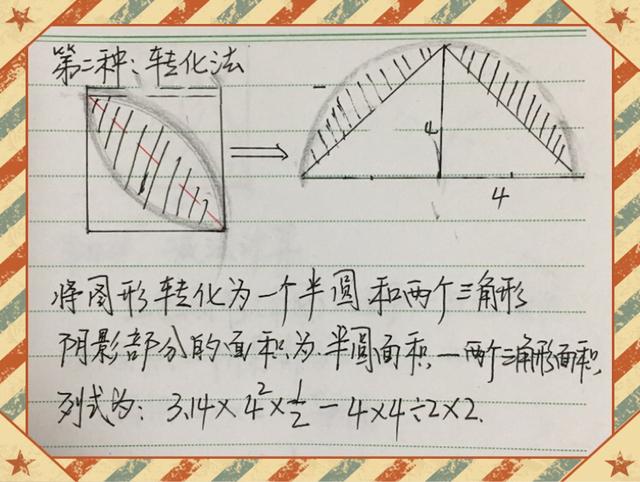 第二种：转化法
4
4
将图形转化为一个半圆和两个三角形
阴影部分的面积为半圆面积－两个三角形面积
列式为：3.14×4²×½－4×4÷2×2.